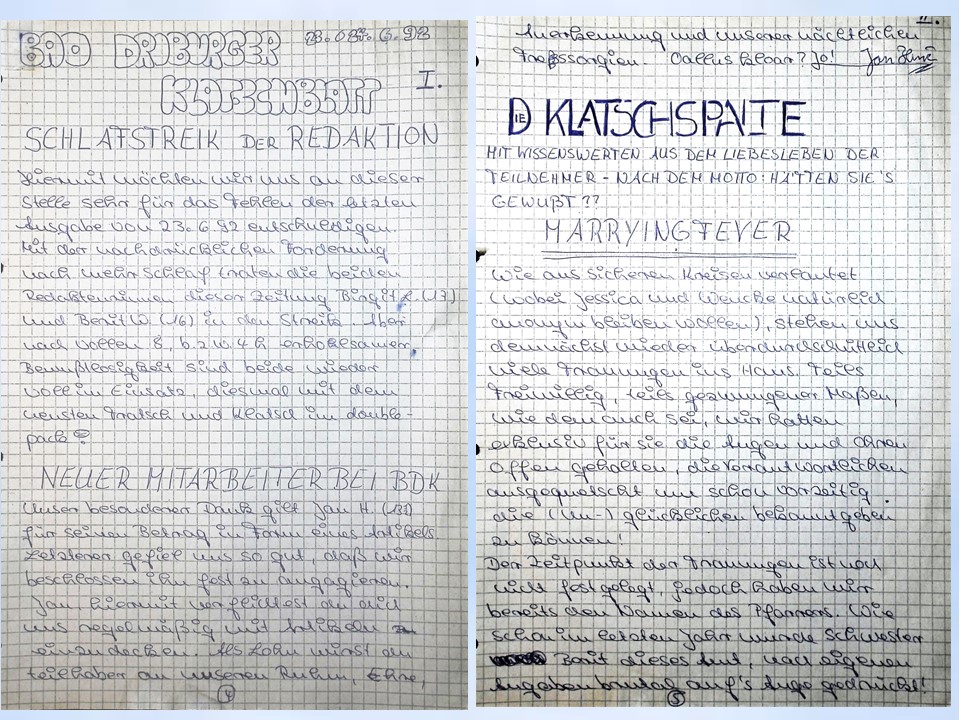 BAD DRIBURGER
KLATSCHBLATT
I.
SCHLAFSTREIK DER REDAKTION
Hiermit möchten wir uns an dieser
Stelle sehr für das Fehlen der letzten
Ausgabe von 23.6.92 entschuldigen.
Mit der nachdrücklichen Forderung
nach mehr Schlaf traten die beiden
Redakteurinnen dieser Zeitung Birgit L. (17)
und Berit W. (16) in den Streik. Aber
nach vollen 8, b.z.w. 4 h erholsamer,
Bewußtlosigkeit sind beide wieder
voll im Einsatz, diesmal mit dem
neusten Tratsch und Klatsch im double-
pack!
NEUER MITARBEITER BEI BDK
Unser besonderer Dank gilt Jan H.
für seinen Betrag in Form eines Artikels.
Letzterer gefiel uns so gut, daß wir
beschlossen ihn fest zu angagieren.
Jan, hiermit verpflichtest du dich
uns regelmäßig mit Artikeln
einzudecken. Als Lohn wirst du
teilhaber an unseren Ruhm, Ehre,
4
II.
Anerkennung und unserer nächtlichen
Fressorgien. Alles klaar? Jo!
DIE KLATSCHSPALTE
MIT WISSENSWERTEN AUS DEM LIEBESLEBEN DER
TEILNEHMER - NACH DEM MOTTO: HÄTTEN SIE'S
GEWUßT??
MARRYINGFEVER
Wie aus sicheren Kreisen verlautet
(wobei Jessica und Wencke natürlich
anonym bleiben wollen), stehen uns
demnächst wieder überdurchschnittlich
viele Trauungen ins Haus. Teils
freiwillig, teils gezwungener Maßen,
wie dem auch sei, wir hatten
exklusiv für sie die Augen und Ohren
offen gehalten, die Verantwortlichen
ausgequetscht um schon vorzeitig
die (Un-) glücklichen bekanntgeben
zu können!
Der Zeitpunkt der Trauungen ist noch
nicht festgelegt, jedoch haben wir
bereits den Namen des Pfarrers. Wie
schon im letzten Jahr wurde Schwester
Berit dieses Amt, nach eigenen
Angaben brutal auf's Auge gedrückt!
5